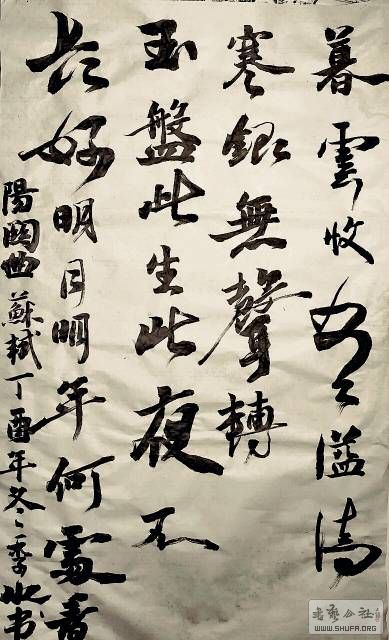 暮雲收尽溢清
寒銀無聲轉
玉盤此生此夜不
長好明月明年何處看
陽関曲 蘇軾丁酉年冬季书
书艺公社
WWW.SHUFA.ORG